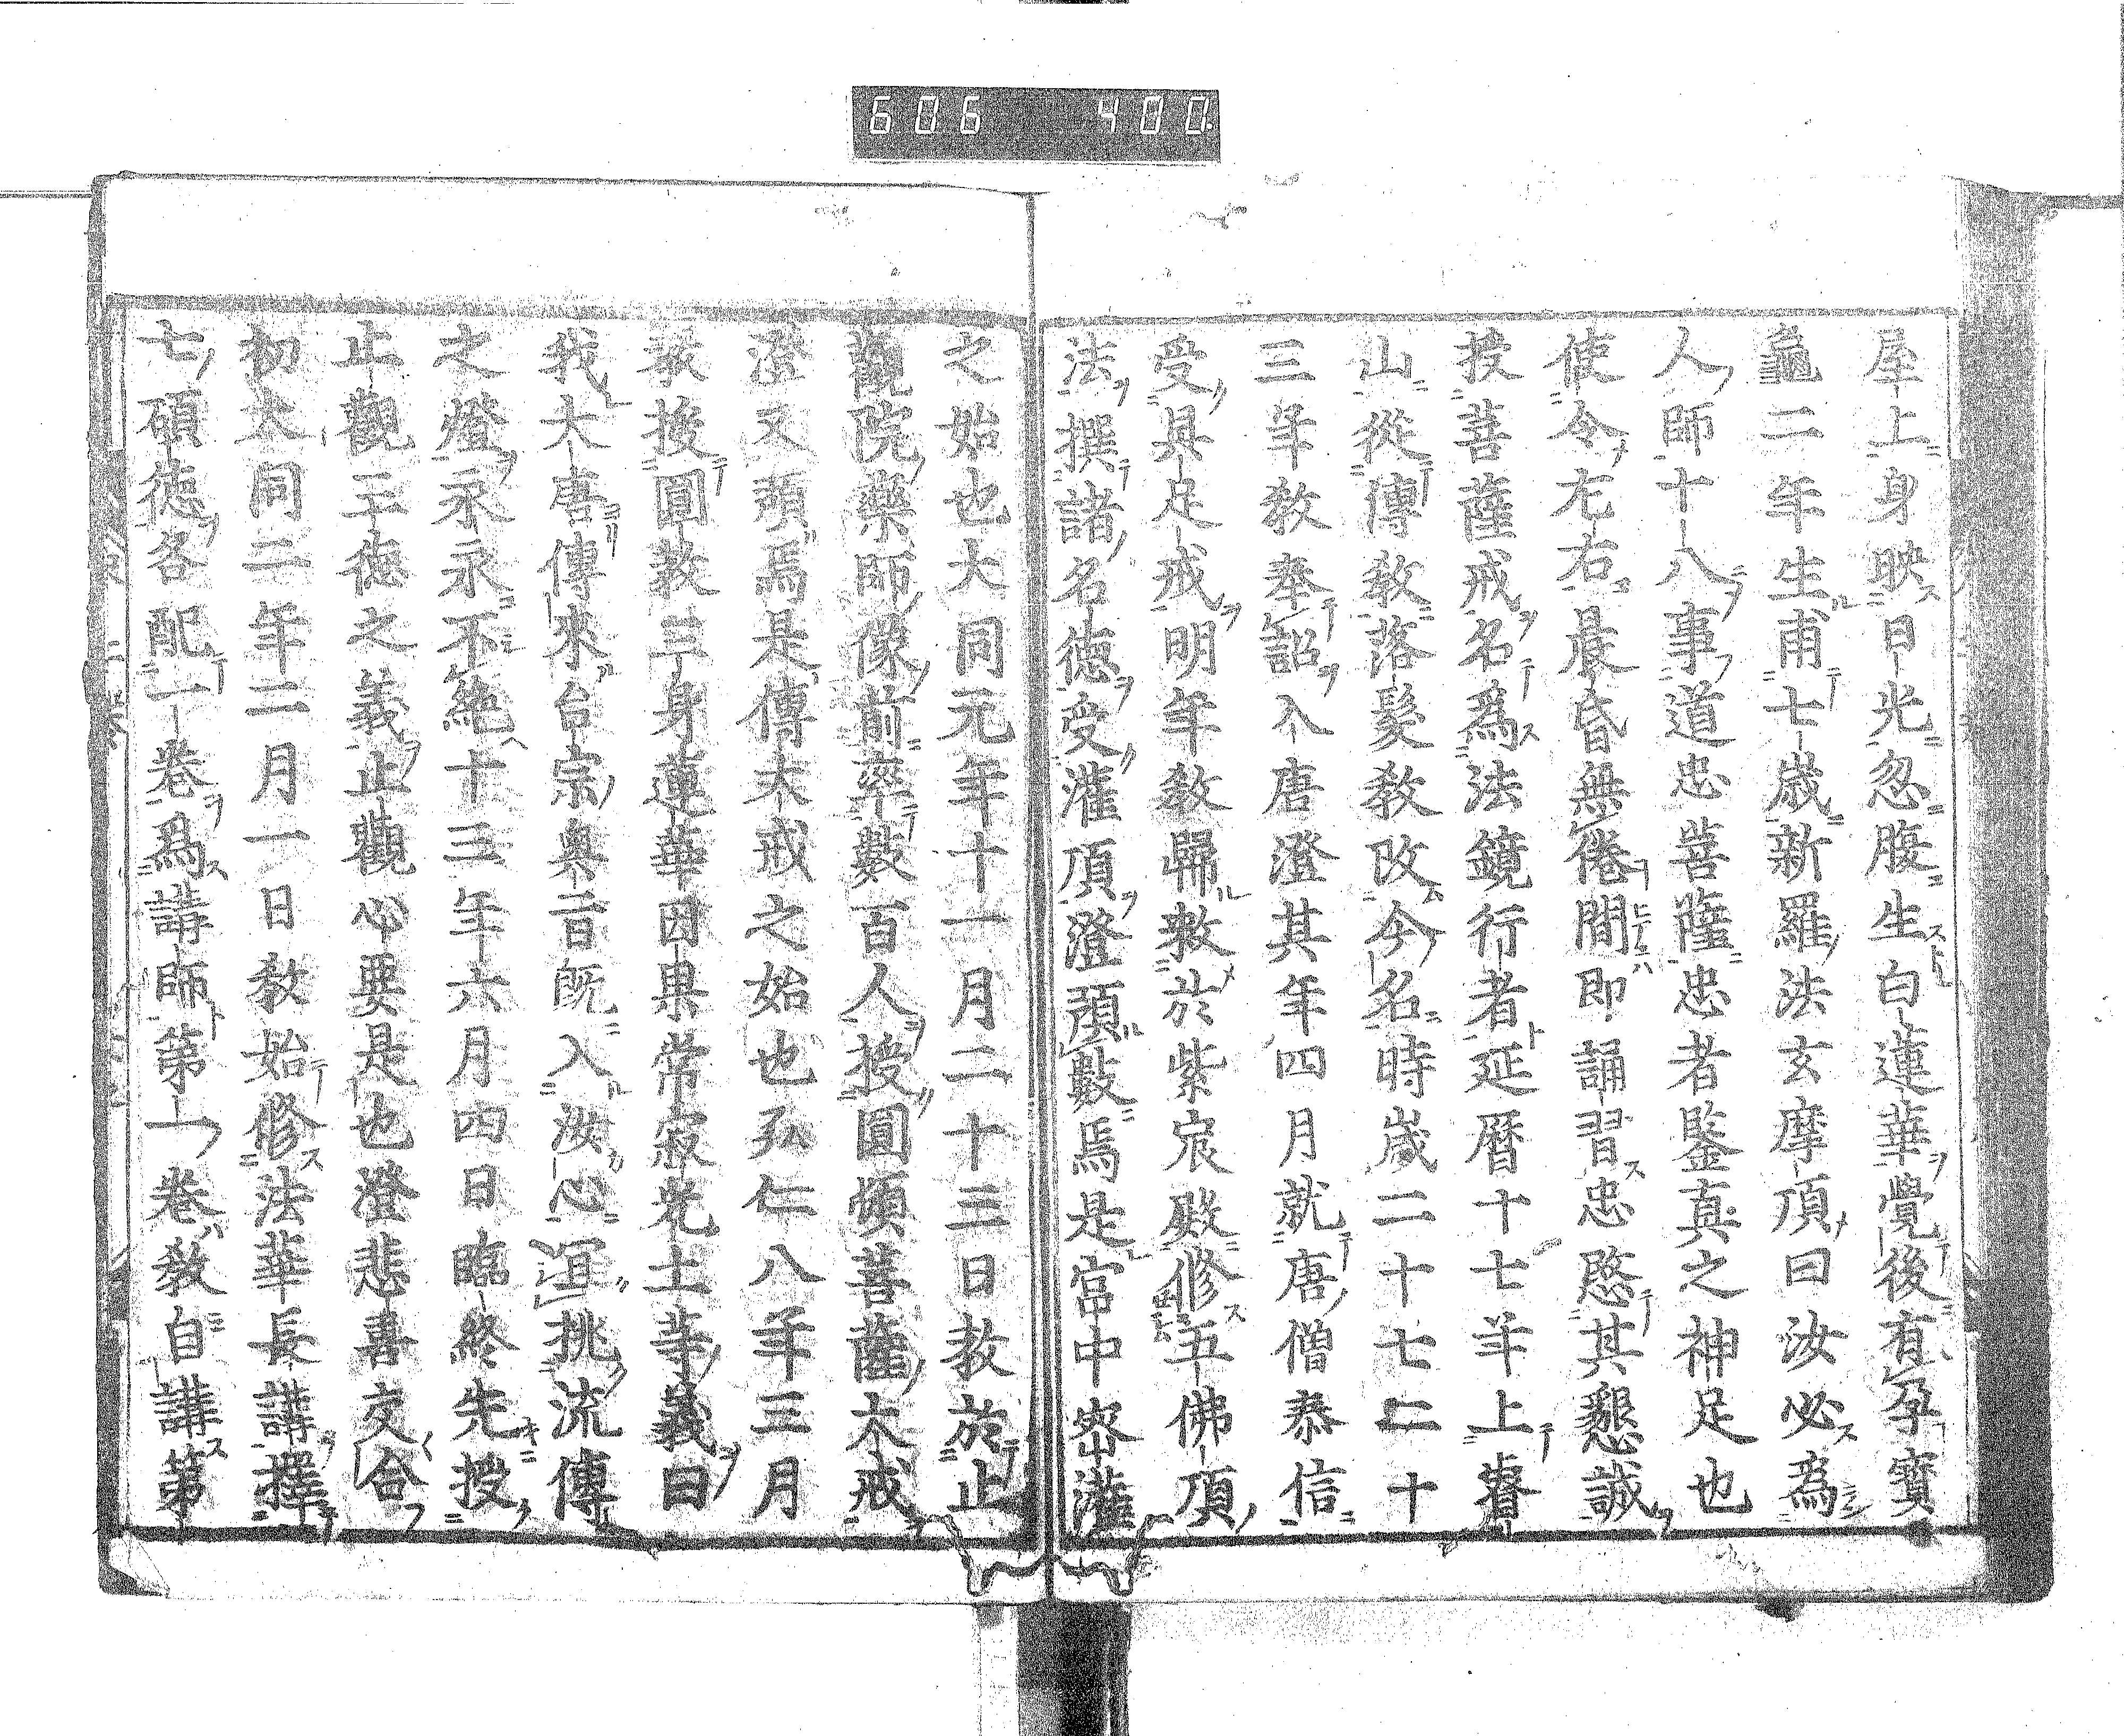 606 400
屋上身映日光忽腹生白蓮華覺後有孕寳
龜二年生甫七歳新羅法玄摩頂曰汝必爲
人師十八事道忠菩薩忠者鑒真之神足也
使令左右晨昏無倦間即誦習忠愍其懇誠
授菩薩戒名爲法鏡行者延暦十七年上睿
山從傳教落髮教改今名時歳二十七二十
三年教奉詔入唐澄其年四月就唐僧泰信
受具足戒明年教歸敕於紫宸殿修五佛頂
法撰諸名德受灌頂澄預數焉是當中密灌
之始也大同元年十一月二十三日教於止
觀院藥師像前率數百人授圓頓菩薩大戒
澄又預焉是傳大戒之始也弘仁八年三月
教授圓教三身蓮華因果常寂光土等義曰
我大唐傳來台宗奥旨既入汝心冝挑流傳
之燈永永不絶十三年六月四日臨終先授
止觀三德之義止觀心要是也澄悲喜交合
初大同二年二月一日教始修法華長講擇
七碩德各配一卷爲講師第一卷教自講第